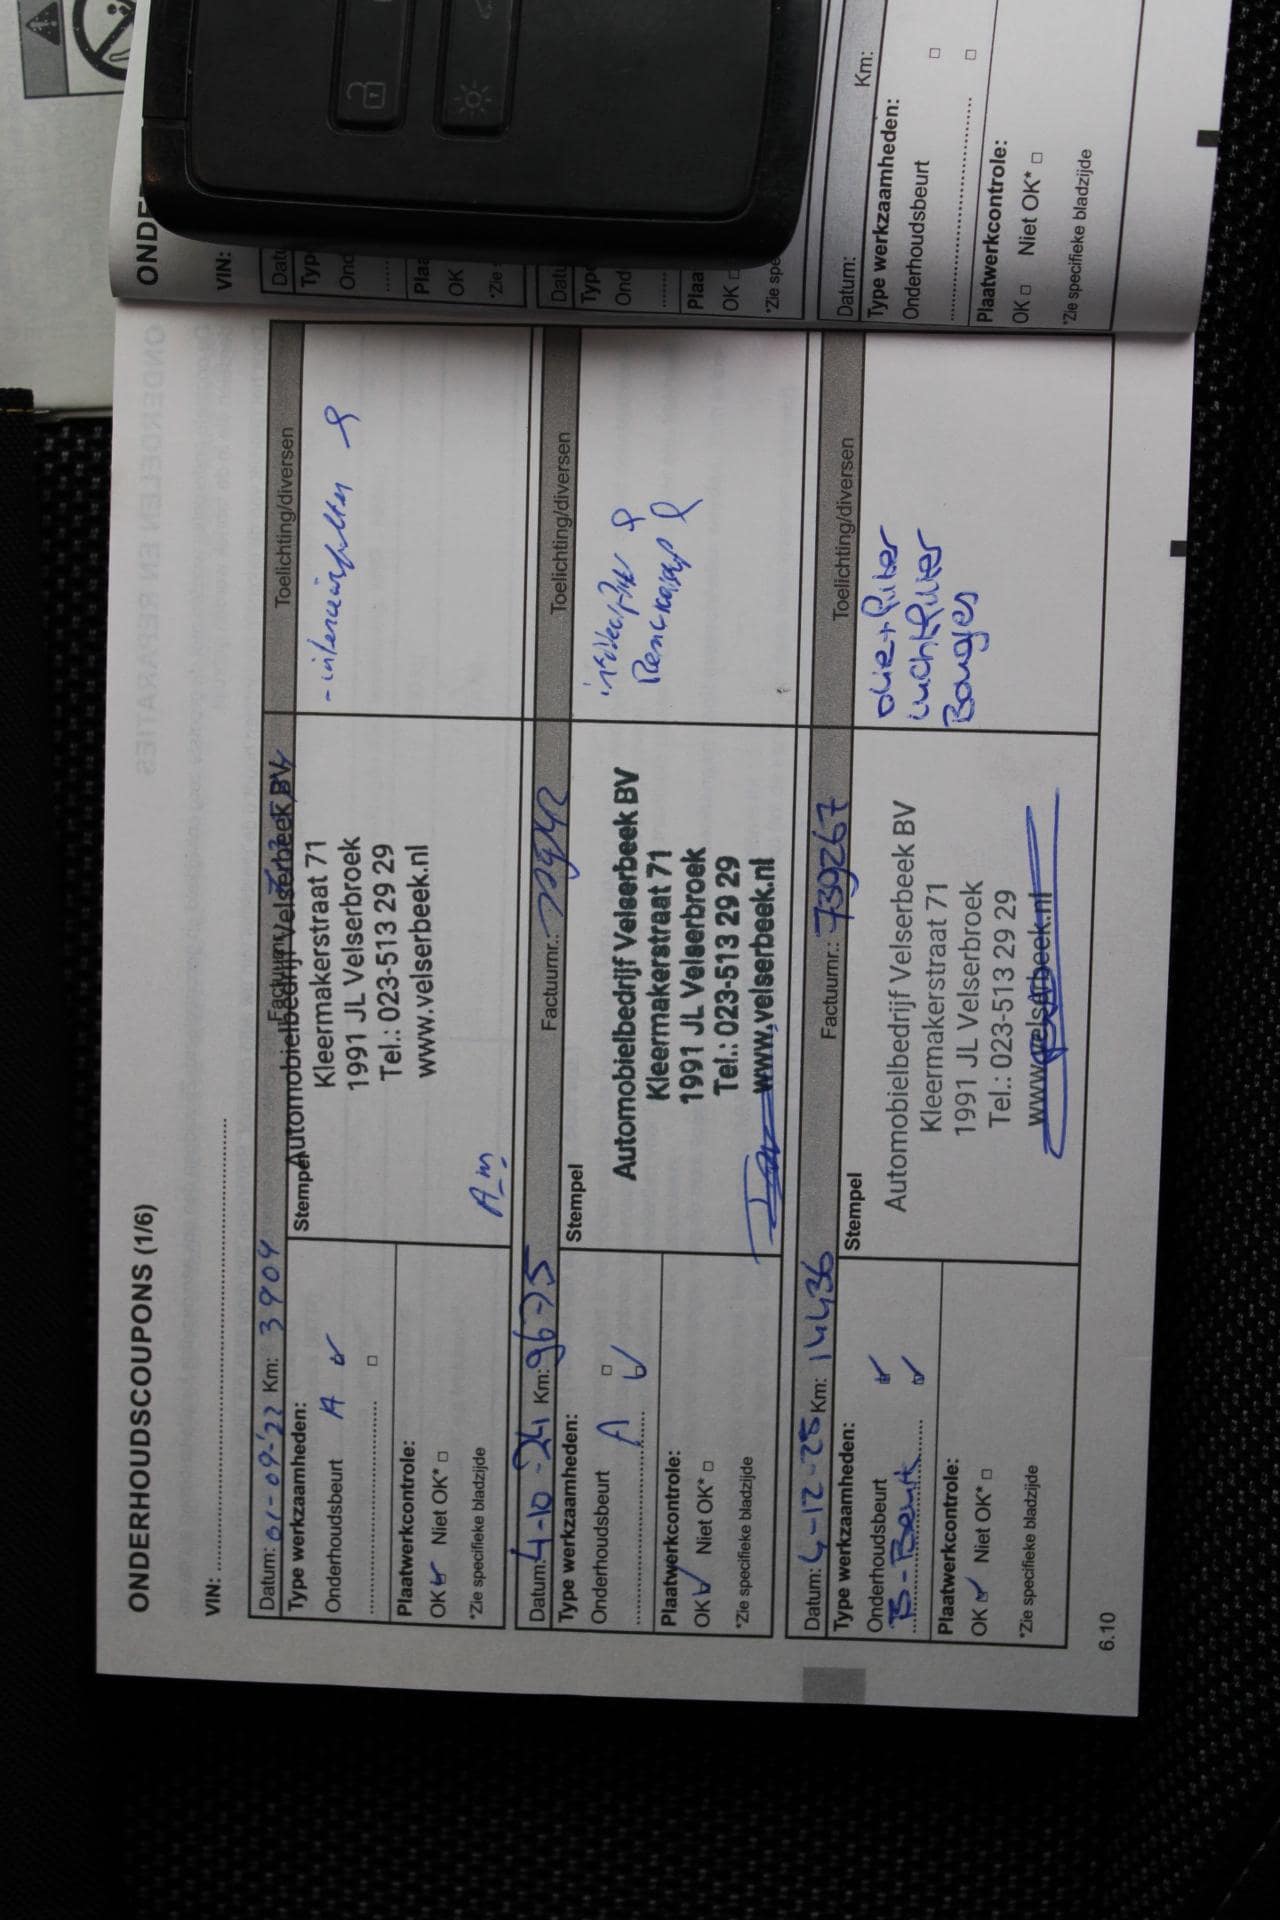 ONDERHOUDSCOUPONS (1/6)
VIN:
Datum: 01-09-'22 Km: 3904 Factuurnr.: Toelichting/diversen
Type werkzaamheden:
Stempel
Onderhoudsbeurt A
Automobielbedrijf Velserbeek BV
Kleermakerstraat 71
1991 JL Velserbroek
Tel.: 023-513 29 29
www.velserbeek.nl
- interieurfilter
Plaatwerkcontrole:
OK Niet OK* □
*Zie specifieke bladzijde
Datum: 4-10-24 Km: 9675 Factuurnr.: Toelichting/diversen
Type werkzaamheden:
Stempel
Onderhoudsbeurt □
A
Automobielbedrijf Velserbeek BV
Kleermakerstraat 71
1991 JL Velserbroek
Tel.: 023-513 29 29
www.velserbeek.nl
Plaatwerkcontrole:
OK Niet OK* □
*Zie specifieke bladzijde
Datum: 4-12-25 Km: 14436 Factuurnr.: 739267 Toelichting/diversen
Type werkzaamheden:
Stempel
Onderhoudsbeurt
B-Beurt
Automobielbedrijf Velserbeek BV
Kleermakerstraat 71
1991 JL Velserbroek
Tel.: 023-513 29 29
www.velserbeek.nl
olie+filter
luchtfilter
Bougies
Plaatwerkcontrole:
OK Niet OK* □
*Zie specifieke bladzijde
6.10
VIN:
OK
OK □
Datum: Km:
Type werkzaamheden:
Onderhoudsbeurt □
□
Plaatwerkcontrole:
OK □ Niet OK* □
*Zie specifieke bladzijde